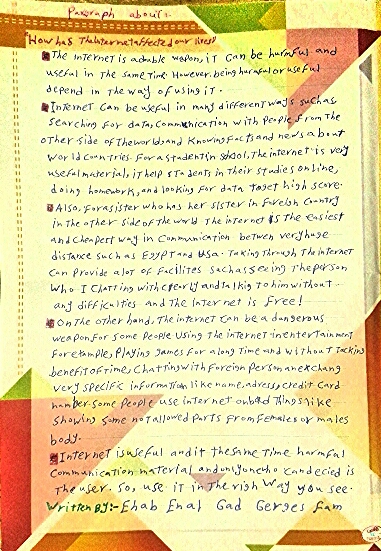 Paragraph about:-
"How has The Internet affected our lives?"
The Internet is a double weapon, it can be harmful and
useful in the same time. However, being harmful or useful
depend in the way of using it.
Internet can be useful in many different ways such as
searching for data, Communication with People from the
other side of the world, and Knowing facts and news about
World Countries. For a student in school, The internet is very
useful material, it help students in their studies online,
doing homework, and looking for data to get high score.
Also, for a sister who has her sister in foreign Country
in the other side of the world. The internet is the easiest
and cheapest way in communication between very huge
distance such as Egypt and USA. Talking through the internet
can provide a lot of facilites such as seeing the person
who I chatting with clearly and talking to him without
any difficulties and the Internet is free!
On the other hand, The internet can be a dangerous
weapon for some people using the internet in entertainment
for example, Playing games for a long time and without tacking
benefit of time, Chatting with foreign person and exchang
very specific information like name, adress, credit Card
number. Some people use internet on bad things like
showing some not allowed parts from females or males
body.
Internet is useful and it the same time harmful
Communication material and only one who can decied is
the user. So, use it in the righ way you see.
Written By:- Ehab Enal Gad Gerges fam